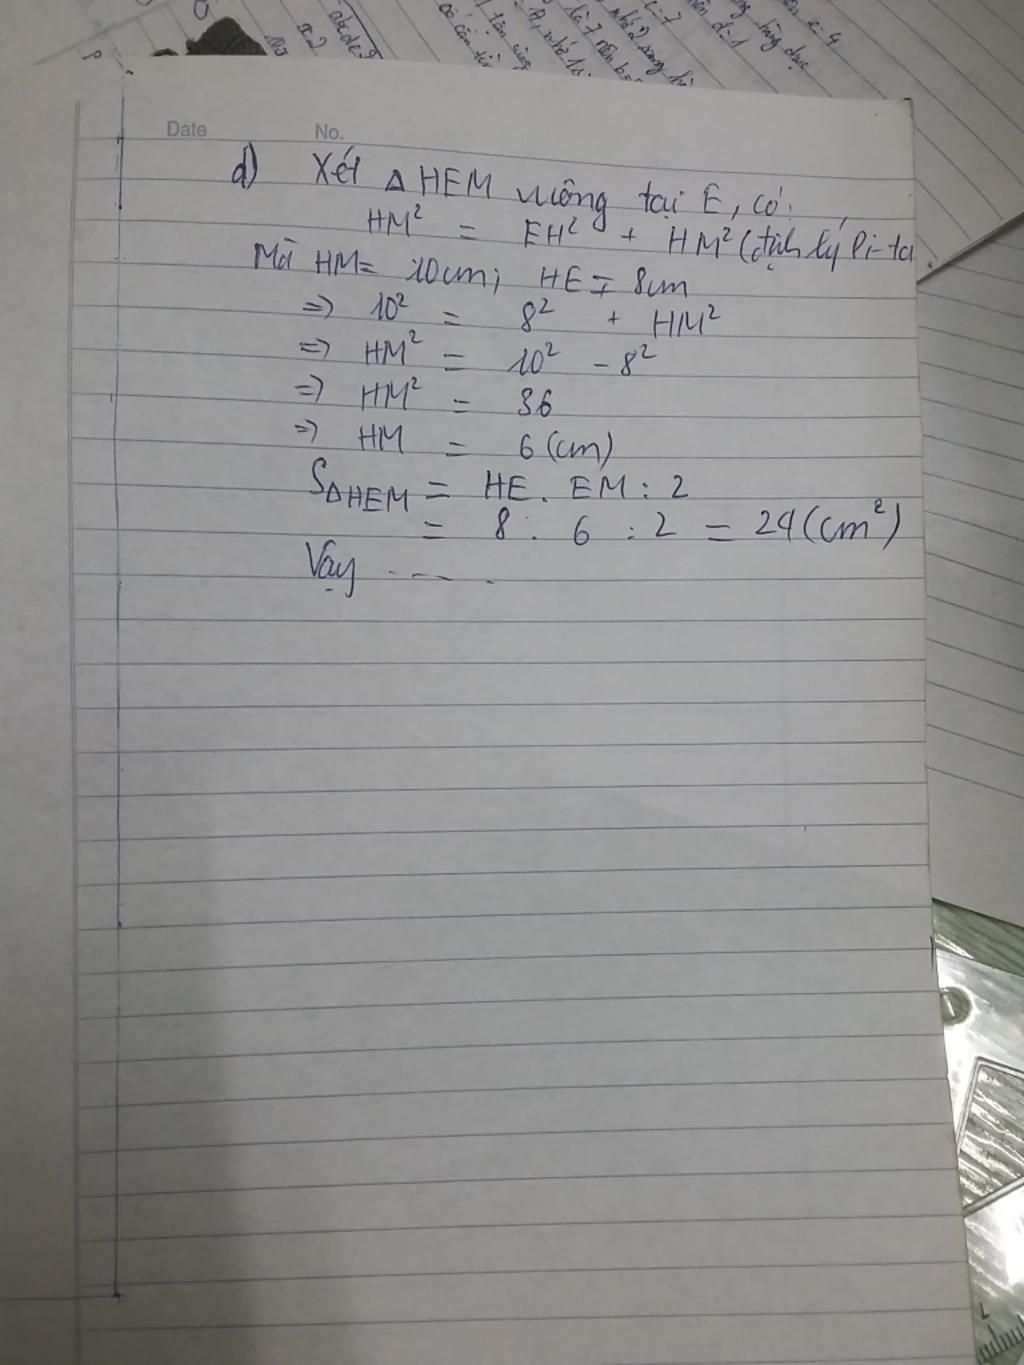 x=2
abcde=3
Date No.
d) Xét △HEM vuông tại E, có:
HM² = EH² + HM² (định lý Pi-ta
Mà HM = 10cm; HE = 8cm
=> 10² = 8² + HM²
=> HM² = 10² - 8²
=> HM² = 36
=> HM = 6 (cm)
S△HEM = HE . EM : 2
= 8 . 6 : 2 = 24 (cm²)
Vậy .....